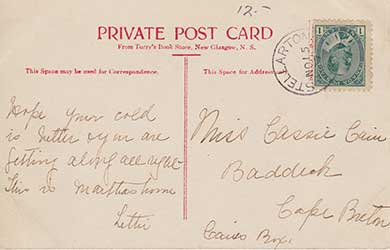 12.-
PRIVATE POST CARD
From Torry's Book Store, New Glasgow, N. S.
This Space may be used for Correspondence.
This Space for Address
STELLARTON
NO 15
1 1
Hope your cold
is better & you are
getting along all right
This is Marthas home
Letter
Miss Cassie Cain
Baddeck
Cape Breton
Box.